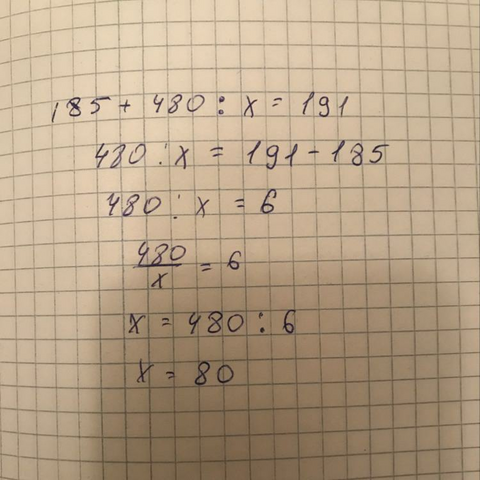 185 + 480 : x = 191
480 : x = 191 - 185
480 : x = 6
480/x = 6
x = 480 : 6
x = 80